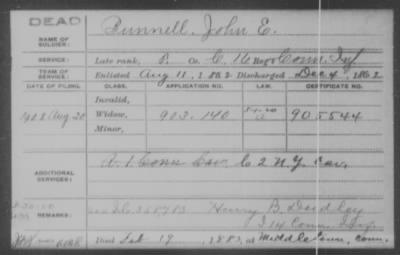 DEAD
NAME OF SOLDIER: Bunnell, John E.
SERVICE: Late rank, P. Co. C, 16 Reg't Conn Inf
TERM OF SERVICE: Enlisted Aug 11, 1862 Discharged Dec 4, 1862
DATE OF FILING. CLASS. APPLICATION NO. LAW. CERTIFICATE NO.
Invalid,
1908 Aug 20 Widow, 903.140 905544
Minor,
ADDITIONAL SERVICES: 1 Conn Cav. C 2 N.Y. Cav.
REMARKS: Henry B. Dudley
I 14 Conn. Inf.
Died Feb 19, 1882, at Conn.